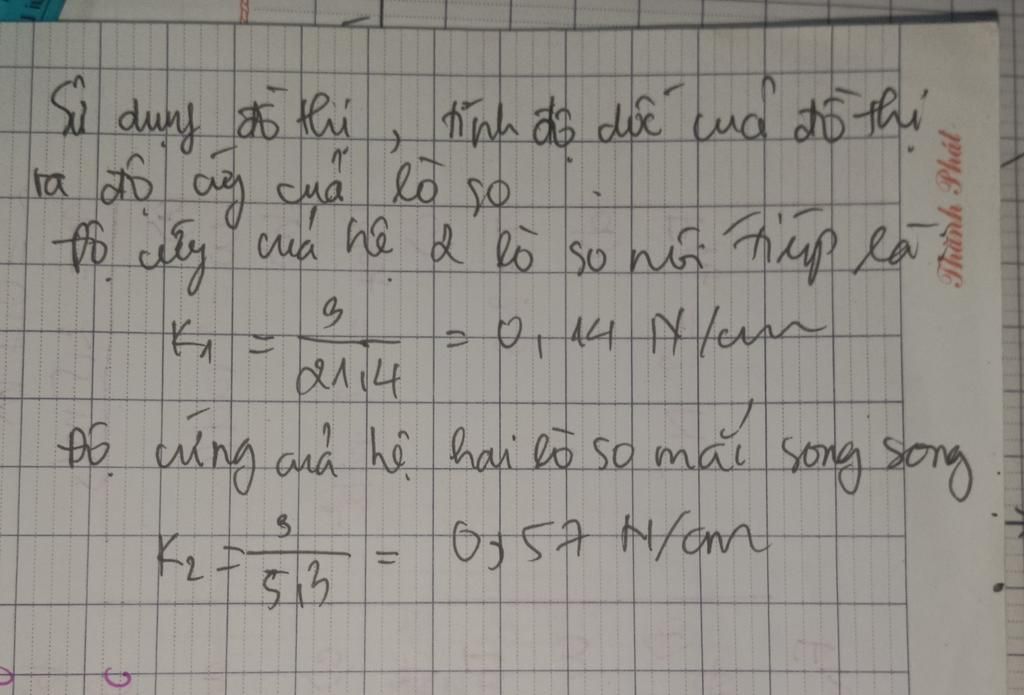 Sử dụng đồ thị, tính độ dốc của đồ thị
ra độ cứng của lò so.
Độ cứng của hệ 2 lò so nối tiếp là
K₁ = 3/21,4 = 0,14 N/cm
Độ cứng của hệ hai lò so mắc song song
K₂ = 3/5,3 = 0,57 N/cm
Thành Phát